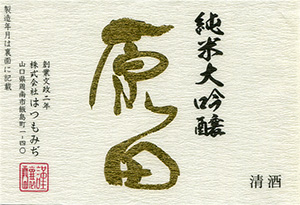 純米大吟醸
原田
清酒
創業文政二年
株式会社はつもみぢ
山口県周南市飯島町一-四〇
製造年月は裏面に記載